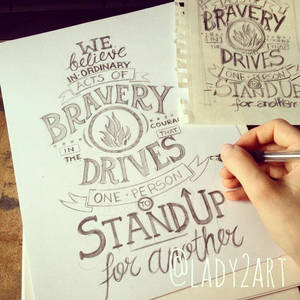 WE
believe
IN·ORDINARY
ACTS OF
BRAVERY
IN THE COURA THAT
DRIVES
ONE·PERSON
TO
STAND UP
for another
BRAVERY
DRIVES
ONE PERSON
TO
STAND UP
for another
@LADY2ART